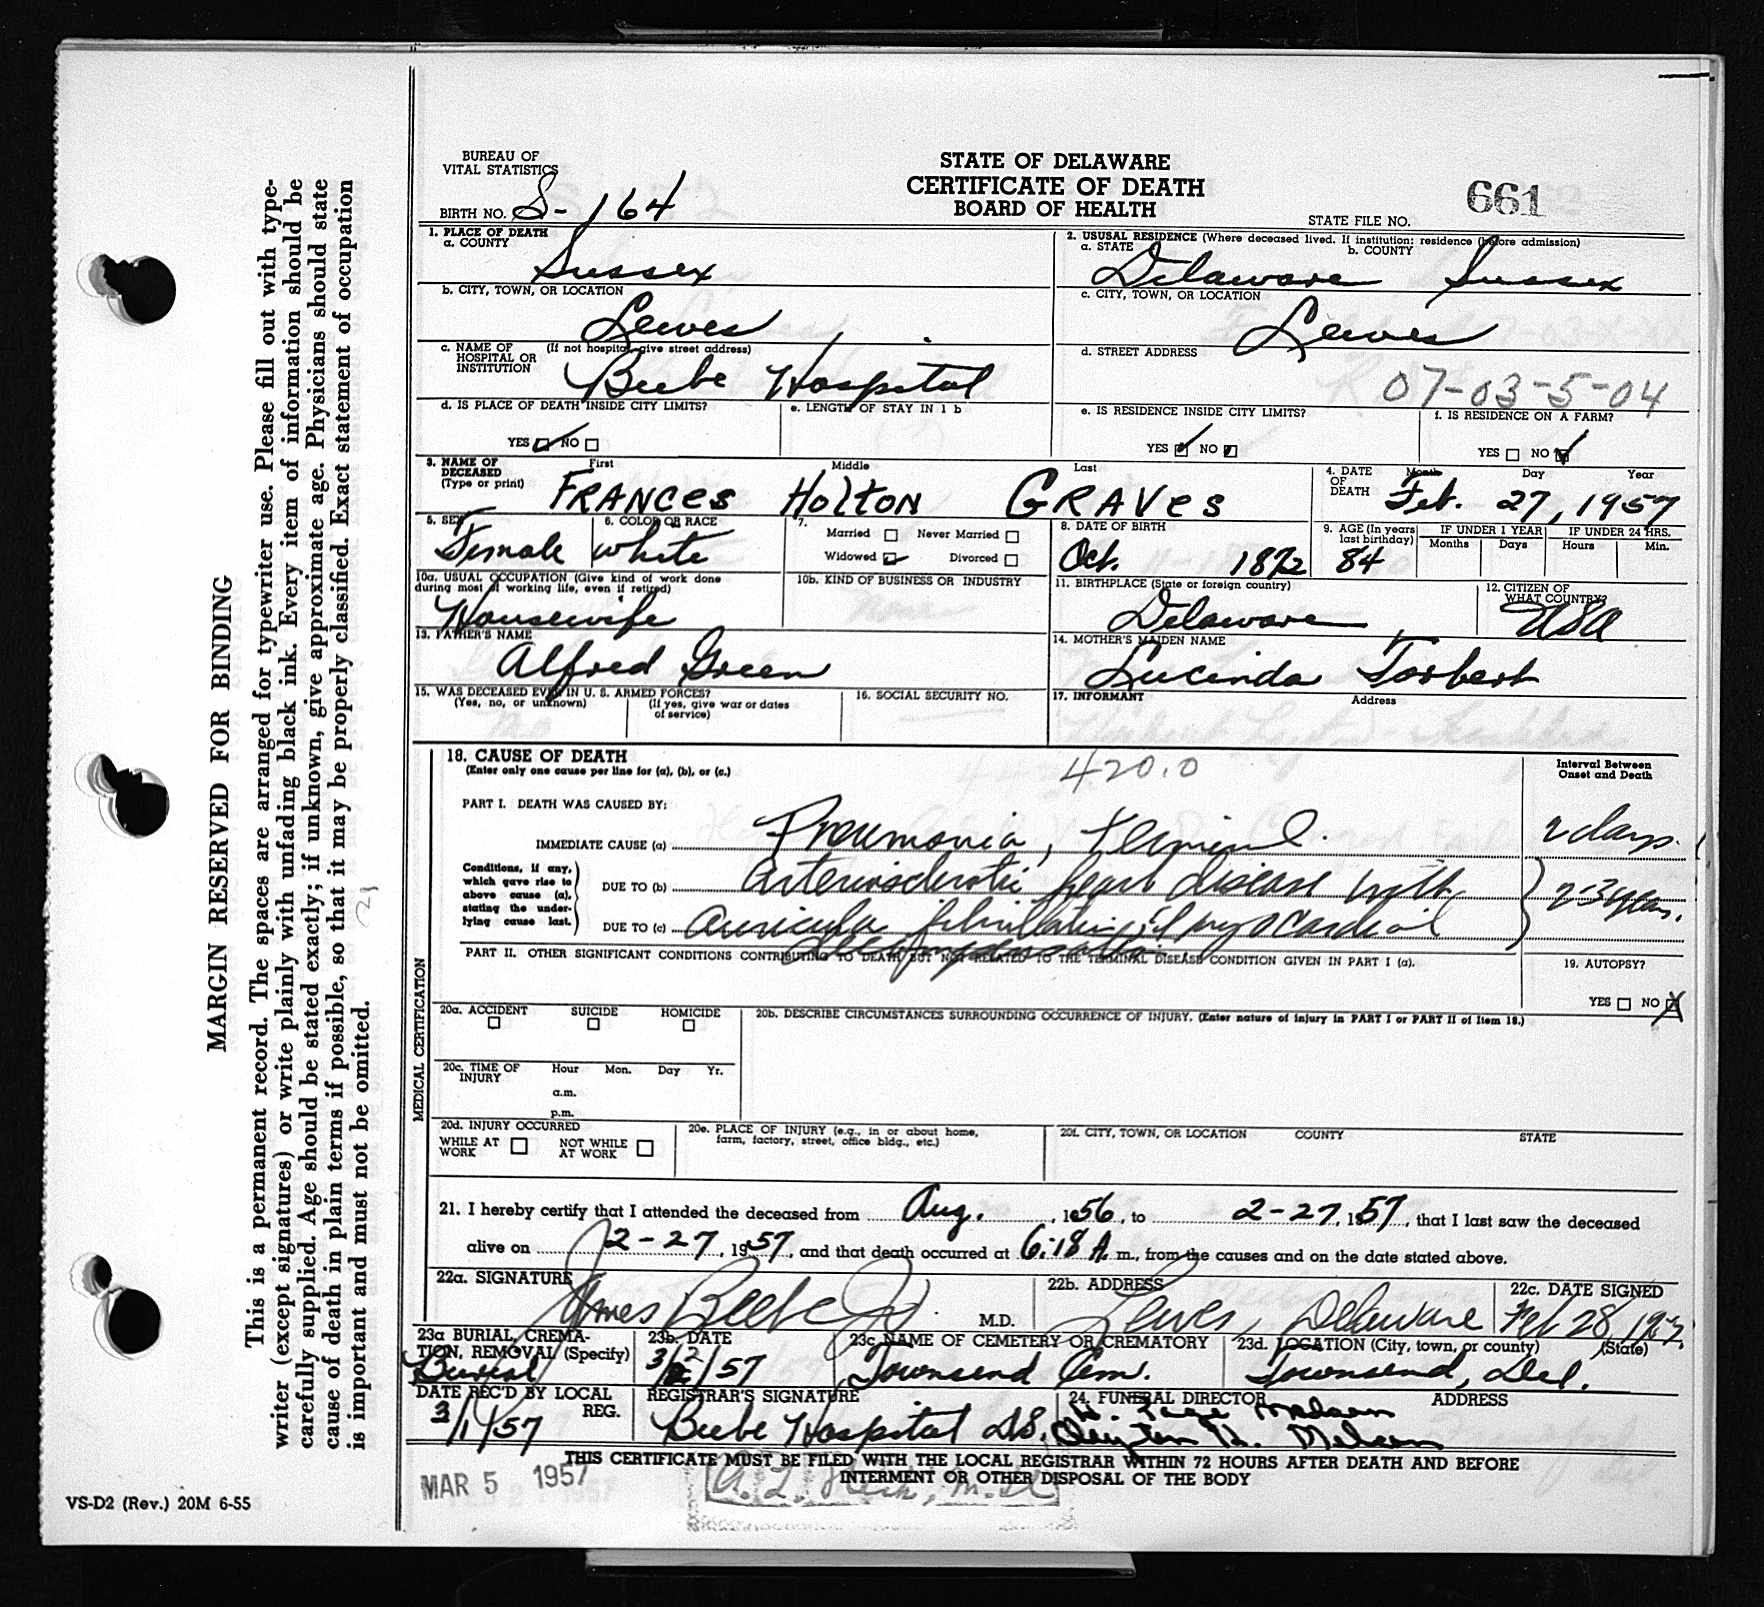 BUREAU OF
VITAL STATISTICS
BIRTH NO. S-164
STATE OF DELAWARE
CERTIFICATE OF DEATH
BOARD OF HEALTH
STATE FILE NO. 661
1. PLACE OF DEATH
a. COUNTY
Sussex
2. USUSAL RESIDENCE (Where deceased lived. If institution: residence (before admission)
a. STATE b. COUNTY
Delaware Sussex
b. CITY, TOWN, OR LOCATION
Lewes
c. CITY, TOWN, OR LOCATION
Lewes
c. NAME OF (If not hospital, give street address)
HOSPITAL OR
INSTITUTION
Beebe Hospital
d. STREET ADDRESS
07-03-5-04
d. IS PLACE OF DEATH INSIDE CITY LIMITS?
YES NO
e. LENGTH OF STAY IN 1 b
e. IS RESIDENCE INSIDE CITY LIMITS?
YES NO
f. IS RESIDENCE ON A FARM?
YES NO
3. NAME OF DECEASED (Type or print)
First Middle Last
FRANCES HOLTON GRAVES
4. DATE OF DEATH
Month Day Year
Feb. 27, 1957
5. SEX
Female
6. COLOR OR RACE
White
7.
Married Never Married
Widowed Divorced
8. DATE OF BIRTH
Oct. 1872
9. AGE (In years last birthday)
84
IF UNDER 1 YEAR
Months Days
IF UNDER 24 HRS.
Hours Min.
10a. USUAL OCCUPATION (Give kind of work done
during most of working life, even if retired)
Housewife
10b. KIND OF BUSINESS OR INDUSTRY
11. BIRTHPLACE (State or foreign country)
Delaware
12. CITIZEN OF
WHAT COUNTRY?
USA
13. FATHER'S NAME
Alfred Green
14. MOTHER'S MAIDEN NAME
Lucinda Torbert
15. WAS DECEASED EVER IN U. S. ARMED FORCES?
(Yes, no, or unknown) (If yes, give war or dates
of service)
16. SOCIAL SECURITY NO.
17. INFORMANT Address
18. CAUSE OF DEATH
(Enter only one cause per line for (a), (b), or (c.)
420.0
Interval Between
Onset and Death
PART I. DEATH WAS CAUSED BY:
IMMEDIATE CAUSE (a) Pneumonia, terminal. 2 days.
Conditions, if any,
which gave rise to
above cause (a),
stating the under-
lying cause last.
DUE TO (b) Arteriosclerotic heart disease with
2-3 years.
DUE TO (c) auricular fibrillation & myocardial
decompensation
PART II. OTHER SIGNIFICANT CONDITIONS CONTRIBUTING TO DEATH BUT NOT RELATED TO THE TERMINAL DISEASE CONDITION GIVEN IN PART I (a).
19. AUTOPSY?
YES NO
MEDICAL CERTIFICATION
20a. ACCIDENT SUICIDE HOMICIDE
20b. DESCRIBE CIRCUMSTANCES SURROUNDING OCCURRENCE OF INJURY. (Enter nature of injury in PART I or PART II of Item 18.)
20c. TIME OF
INJURY
Hour Mon. Day Yr.
a.m.
p.m.
20d. INJURY OCCURRED
WHILE AT WORK NOT WHILE AT WORK
20e. PLACE OF INJURY (e.g., in or about home,
farm, factory, street, office bldg., etc.)
20f. CITY, TOWN, OR LOCATION COUNTY STATE
21. I hereby certify that I attended the deceased from Aug., 1956, to 2-27, 1957, that I last saw the deceased
alive on 2-27, 1957, and that death occurred at 6:18 A. m., from the causes and on the date stated above.
22a. SIGNATURE
James Beebe Jr. M.D.
22b. ADDRESS
Lewes, Delaware
22c. DATE SIGNED
Feb 28, 1957
23a BURIAL, CREMA-
TION, REMOVAL (Specify)
Burial
23b. DATE
3/2/57
23c. NAME OF CEMETERY OR CREMATORY
Townsend Cem.
23d. LOCATION (City, town, or county) (State)
Townsend, Del.
DATE REC'D BY LOCAL
REG.
3/1/57
REGISTRAR'S SIGNATURE
Beebe Hospital
24. FUNERAL DIRECTOR ADDRESS
THIS CERTIFICATE MUST BE FILED WITH THE LOCAL REGISTRAR WITHIN 72 HOURS AFTER DEATH AND BEFORE
INTERMENT OR OTHER DISPOSAL OF THE BODY
MAR 5 1957
VS-D2 (Rev.) 20M 6-55
MARGIN RESERVED FOR BINDING
This is a permanent record. The spaces are arranged for typewriter use. Please fill out with type-
writer (except signatures) or write plainly with unfading black ink. Every item of information should be
carefully supplied. Age should be stated exactly; if unknown, give approximate age. Physicians should state
cause of death in plain terms if possible, so that it may be properly classified. Exact statement of occupation
is important and must not be omitted.